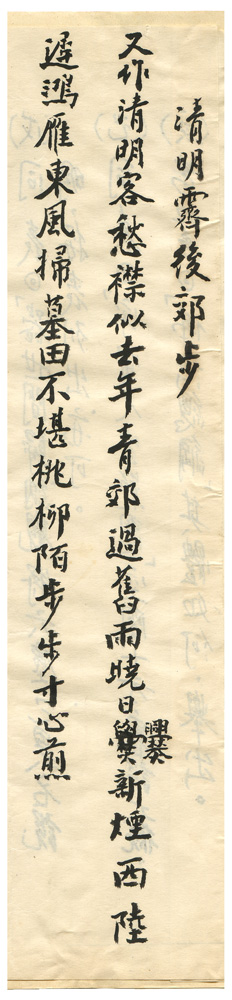 清明霽後郊步
又作清明客愁襟似去年青郊過舊雨曉日爨新煙西陸
遲鴻雁東風掃墓田不堪桃柳陌步步寸心煎